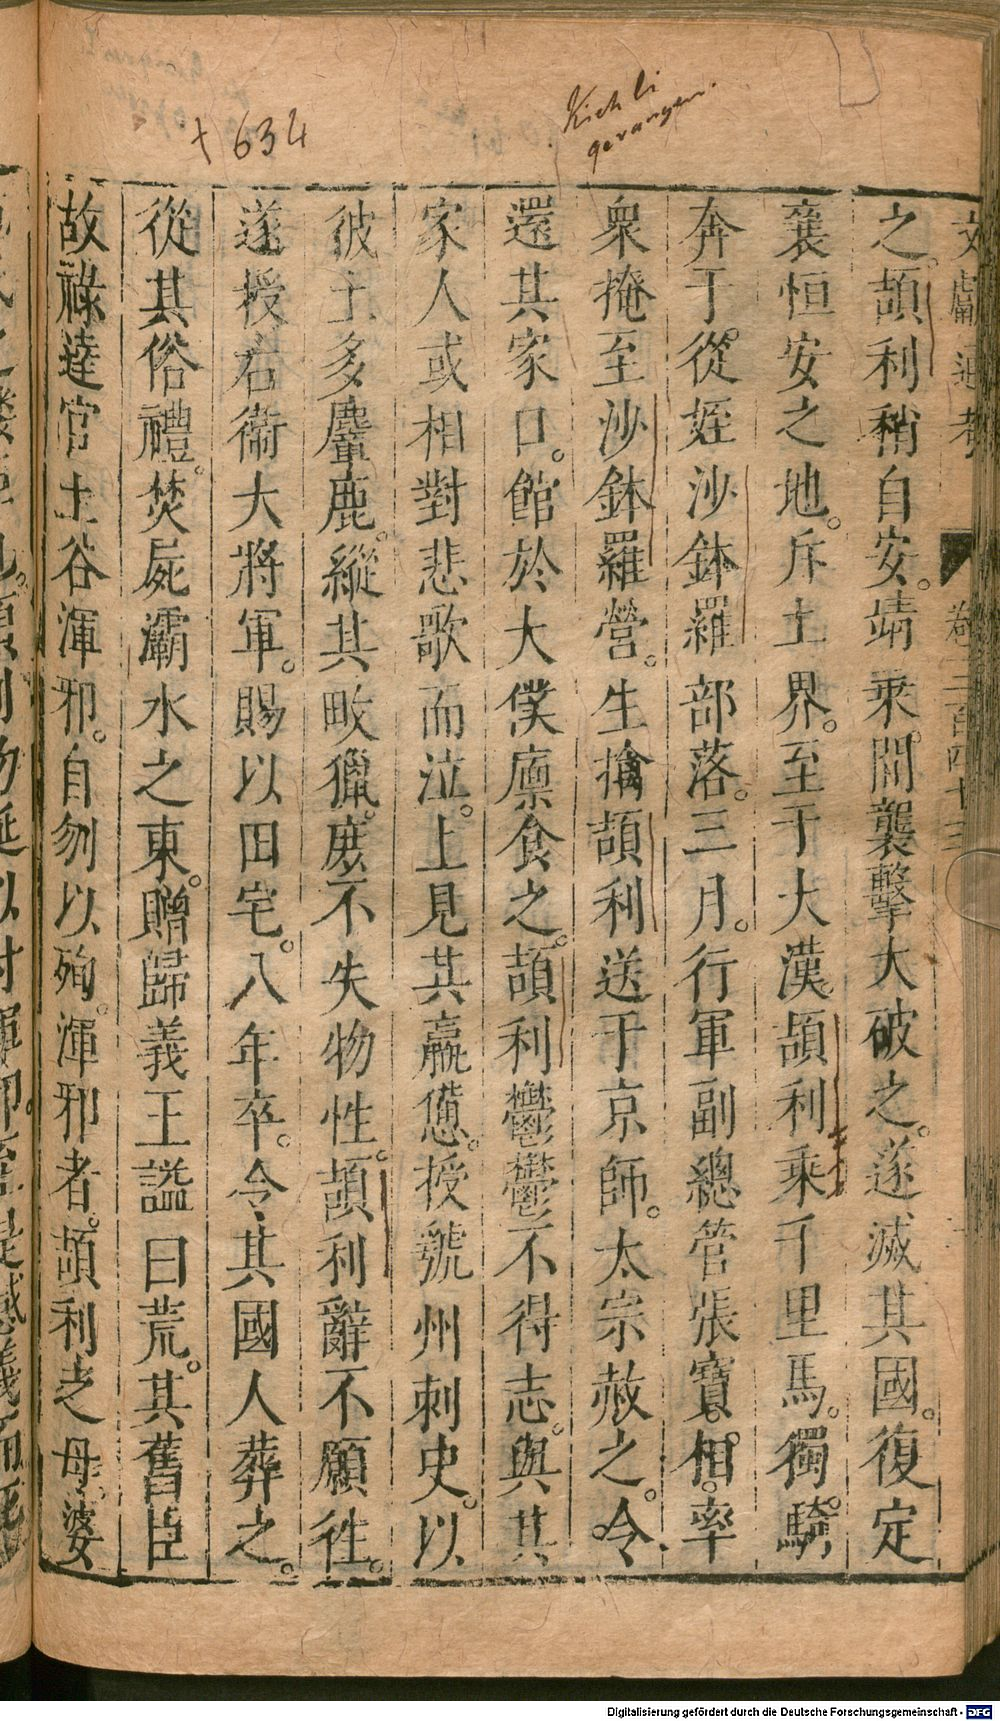 + 634
Kieh li
gevangen.
文獻通考 卷三百四十三
之。頡利稍自安。靖乘間襲擊大破之。遂滅其國。復定
襄恒安之地。斥土界。至于大漠。頡利乘千里馬。獨騎
奔于從姪沙鉢羅部落。三月。行軍副總管張寶相。率
衆掩至沙鉢羅營。生擒頡利送于京師。太宗赦之。令
還其家口。館於大僕廩食之。頡利鬱鬱不得志。與其
家人或相對悲歌而泣。上見其羸憊。授虢州刺史。以
彼土多麞鹿。縱其畋獵。庶不失物性。頡利辭不願往。
遂授右衞大將軍。賜以田宅。八年卒。令其國人葬之。
從其俗禮。焚屍灞水之東。贈歸義王謚曰荒。其舊臣
故祿達官土谷渾邪。自刎以殉。渾邪者。頡利之母。婆
Digitalisierung gefördert durch die Deutsche Forschungsgemeinschaft - DFG